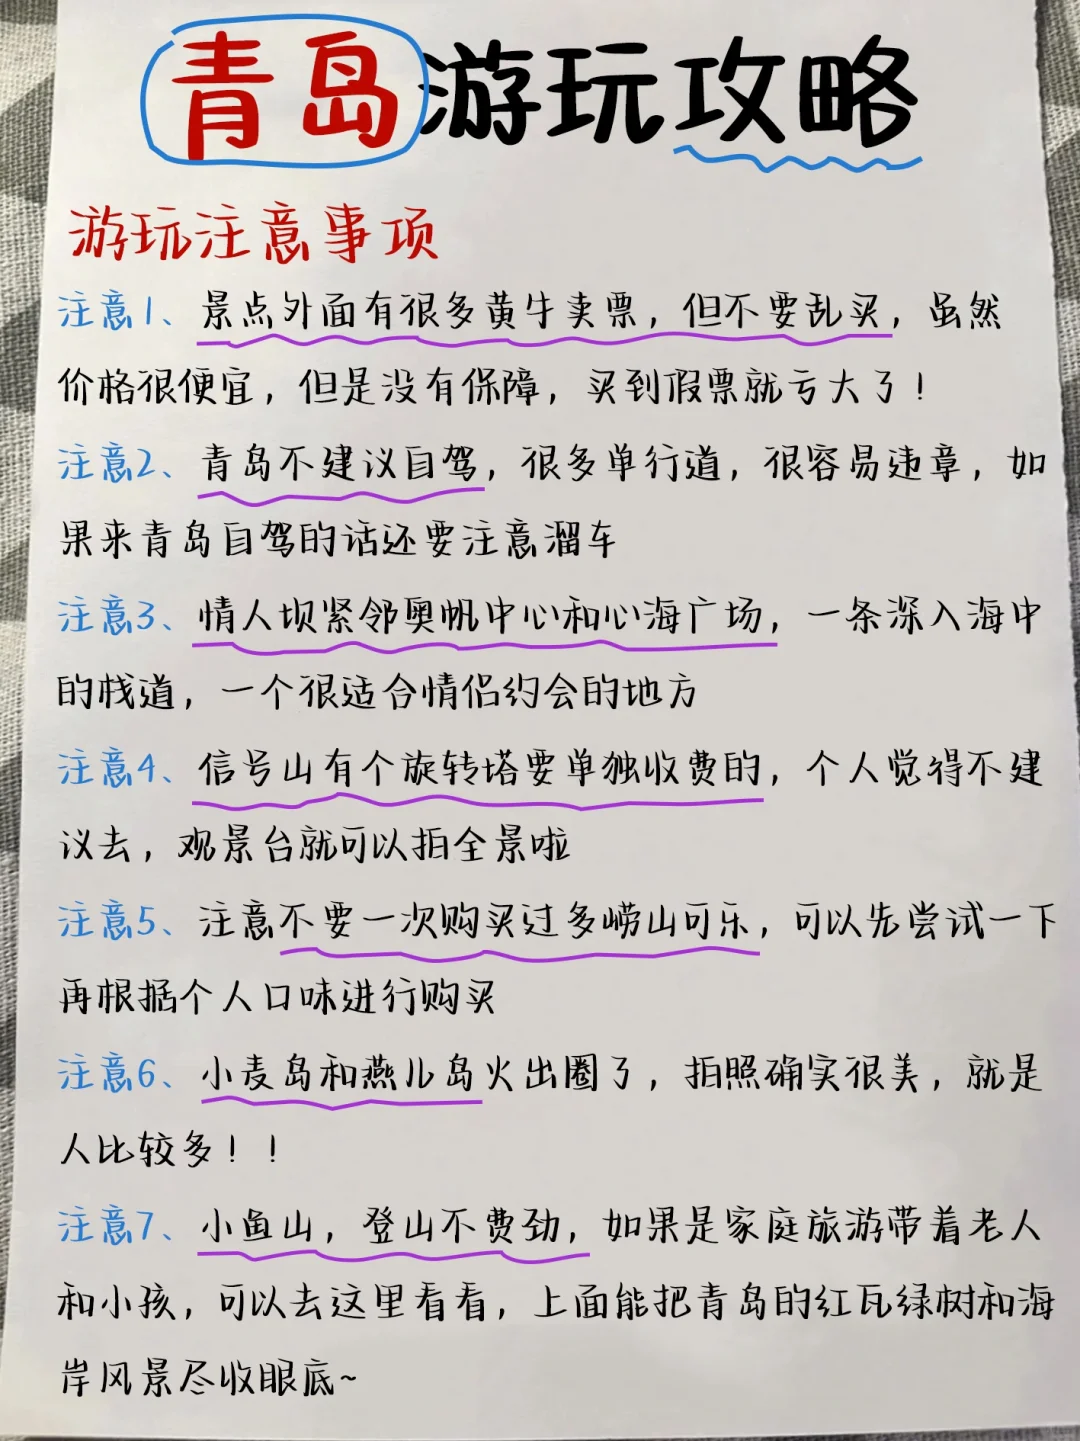 青岛游玩攻略
游玩注意事项
注意1、景点外面有很多黄牛卖票，但不要乱买，虽然
价格很便宜，但是没有保障，买到假票就亏大了！
注意2、青岛不建议自驾，很多单行道，很容易违章，如
果来青岛自驾的话还要注意溜车
注意3、情人坝紧邻奥帆中心和心海广场，一条深入海中
的栈道，一个很适合情侣约会的地方
注意4、信号山有个旋转塔要单独收费的，个人觉得不建
议去，观景台就可以拍全景啦
注意5、注意不要一次购买过多崂山可乐，可以先尝试一下
再根据个人口味进行购买
注意6、小麦岛和燕儿岛火出圈了，拍照确实很美，就是
人比较多！！
注意7、小鱼山，登山不费劲，如果是家庭旅游带着老人
和小孩，可以去这里看看，上面能把青岛的红瓦绿树和海
岸风景尽收眼底~